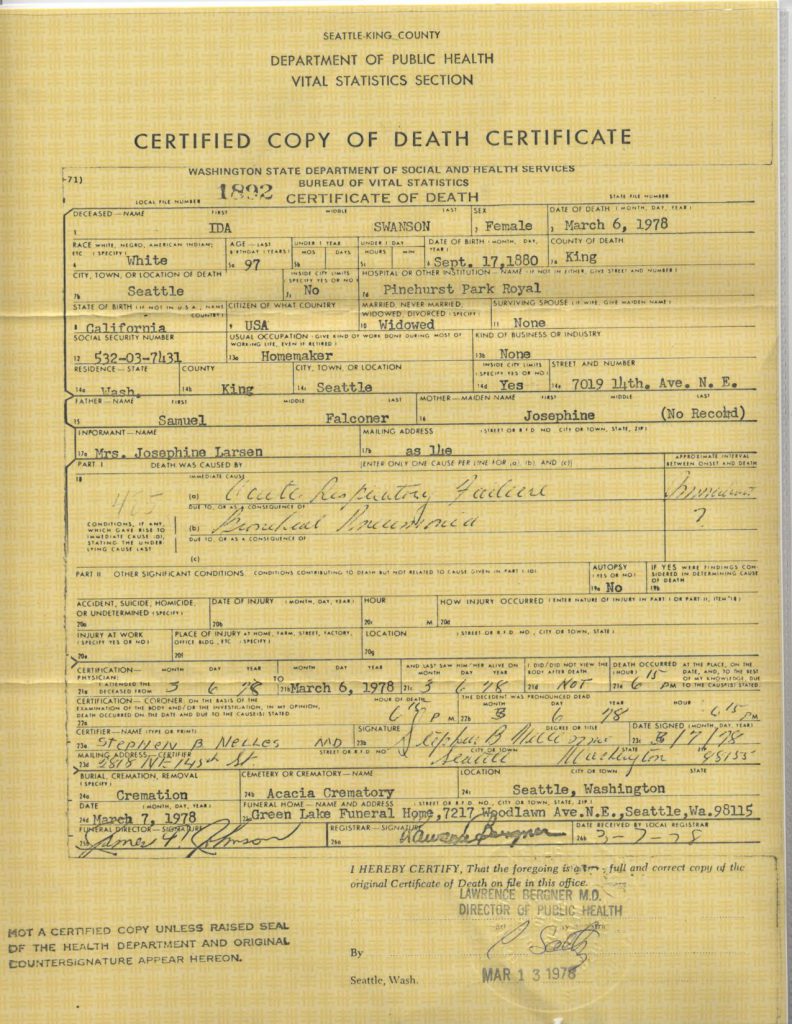 SEATTLE-KING COUNTY
DEPARTMENT OF PUBLIC HEALTH
VITAL STATISTICS SECTION
CERTIFIED COPY OF DEATH CERTIFICATE
-71)
WASHINGTON STATE DEPARTMENT OF SOCIAL AND HEALTH SERVICES
BUREAU OF VITAL STATISTICS
LOCAL FILE NUMBER 1892 CERTIFICATE OF DEATH STATE FILE NUMBER
DECEASED—NAME FIRST MIDDLE LAST SEX DATE OF DEATH (MONTH, DAY, YEAR)
1 IDA SWANSON Female March 6, 1978
RACE WHITE, NEGRO, AMERICAN INDIAN, ETC (SPECIFY) AGE—LAST BIRTHDAY (YEARS) UNDER 1 YEAR UNDER 1 DAY DATE OF BIRTH (MONTH, DAY, YEAR) COUNTY OF DEATH
MOS DAYS HOURS MIN
White 5a 97 5b Sept. 17,1880 King
CITY, TOWN, OR LOCATION OF DEATH INSIDE CITY LIMITS (SPECIFY YES OR NO) HOSPITAL OR OTHER INSTITUTION—NAME (IF NOT IN EITHER, GIVE STREET AND NUMBER)
7b Seattle No Pinehurst Park Royal
STATE OF BIRTH (IF NOT IN U.S.A., NAME COUNTRY) CITIZEN OF WHAT COUNTRY MARRIED, NEVER MARRIED, WIDOWED, DIVORCED (SPECIFY) SURVIVING SPOUSE (IF WIFE, GIVE MAIDEN NAME)
8 California 9 USA 10 Widowed 11 None
SOCIAL SECURITY NUMBER USUAL OCCUPATION (GIVE KIND OF WORK DONE DURING MOST OF WORKING LIFE, EVEN IF RETIRED) KIND OF BUSINESS OR INDUSTRY
12 532-03-7431 13a Homemaker 13b None
RESIDENCE—STATE COUNTY CITY, TOWN, OR LOCATION INSIDE CITY LIMITS (SPECIFY YES OR NO) STREET AND NUMBER
14a Wash. 14b King 14c Seattle 14d Yes 14e 7019 14th. Ave. N. E.
FATHER—NAME FIRST MIDDLE LAST MOTHER—MAIDEN NAME FIRST MIDDLE LAST
15 Samuel Falconer 16 Josephine (No Record)
INFORMANT—NAME MAILING ADDRESS (STREET OR R.F.D. NO., CITY OR TOWN, STATE, ZIP)
17a Mrs. Josephine Larsen 17b as 14e
PART I DEATH WAS CAUSED BY [ENTER ONLY ONE CAUSE PER LINE FOR (a), (b), AND (c)] APPROXIMATE INTERVAL BETWEEN ONSET AND DEATH
18 IMMEDIATE CAUSE
(a) Acute Respiratory Failure
DUE TO, OR AS A CONSEQUENCE OF
CONDITIONS, IF ANY, WHICH GAVE RISE TO IMMEDIATE CAUSE (a), STATING THE UNDERLYING CAUSE LAST
(b) Bronchial Pneumonia ?
DUE TO, OR AS A CONSEQUENCE OF
(c)
PART II OTHER SIGNIFICANT CONDITIONS CONDITIONS CONTRIBUTING TO DEATH BUT NOT RELATED TO CAUSE GIVEN IN PART I (a) AUTOPSY (YES OR NO) IF YES WERE FINDINGS CONSIDERED IN DETERMINING CAUSE OF DEATH
19a No 19b
ACCIDENT, SUICIDE, HOMICIDE, OR UNDETERMINED (SPECIFY) DATE OF INJURY (MONTH, DAY, YEAR) HOUR HOW INJURY OCCURRED (ENTER NATURE OF INJURY IN PART I OR PART II, ITEM 18)
20a 20b 20c M 20d
INJURY AT WORK (SPECIFY YES OR NO) PLACE OF INJURY AT HOME, FARM, STREET, FACTORY, OFFICE BLDG., ETC (SPECIFY) LOCATION (STREET OR R.F.D. NO., CITY OR TOWN, STATE)
20e 20f 20g
CERTIFICATION— MONTH DAY YEAR MONTH DAY YEAR AND LAST SAW HIM/HER ALIVE ON MONTH DAY YEAR I DID/DID NOT VIEW THE BODY AFTER DEATH DEATH OCCURRED (HOUR) AT THE PLACE, ON THE DATE, AND, TO THE BEST OF MY KNOWLEDGE, DUE TO THE CAUSE(S) STATED
PHYSICIAN: I ATTENDED THE DECEASED FROM TO
21a 3 6 78 21b March 6, 1978 21c 3 6 78 21d NOT 21e 6 15 PM
CERTIFICATION—CORONER ON THE BASIS OF THE EXAMINATION OF THE BODY AND/OR THE INVESTIGATION, IN MY OPINION, DEATH OCCURRED ON THE DATE AND DUE TO THE CAUSE(S) STATED HOUR OF DEATH THE DECEDENT WAS PRONOUNCED DEAD MONTH DAY YEAR HOUR
22a 6 15 P M 22b 6 78 6 15 P M
CERTIFIER—NAME (TYPE OR PRINT) SIGNATURE DEGREE OR TITLE DATE SIGNED (MONTH, DAY, YEAR)
23a STEPHEN B NELLES MD 23c 3/7/78
MAILING ADDRESS—CERTIFIER STREET OR R.F.D. NO. CITY OR TOWN STATE ZIP
23d 2818 NE 145th St. Seattle Washington 98155
BURIAL, CREMATION, REMOVAL (SPECIFY) CEMETERY OR CREMATORY—NAME LOCATION CITY OR TOWN STATE
24a Cremation 24b Acacia Crematory 24c Seattle, Washington
DATE (MONTH, DAY, YEAR) FUNERAL HOME—NAME AND ADDRESS (STREET OR R.F.D. NO., CITY OR TOWN, STATE, ZIP)
24d March 7, 1978 25a Green Lake Funeral Home,7217 Woodlawn Ave.N.E.,Seattle,Wa.98115
FUNERAL DIRECTOR—SIGNATURE REGISTRAR—SIGNATURE DATE RECEIVED BY LOCAL REGISTRAR
25b James Johnson 26a Lawrence Bergner 26b 3-7-78
I HEREBY CERTIFY, That the foregoing is a full and correct copy of the
original Certificate of Death on file in this office.
LAWRENCE BERGNER M.D.
DIRECTOR OF PUBLIC HEALTH
NOT A CERTIFIED COPY UNLESS RAISED SEAL
OF THE HEALTH DEPARTMENT AND ORIGINAL
COUNTERSIGNATURE APPEAR HEREON.
By
MAR 13 1978
Seattle, Wash.